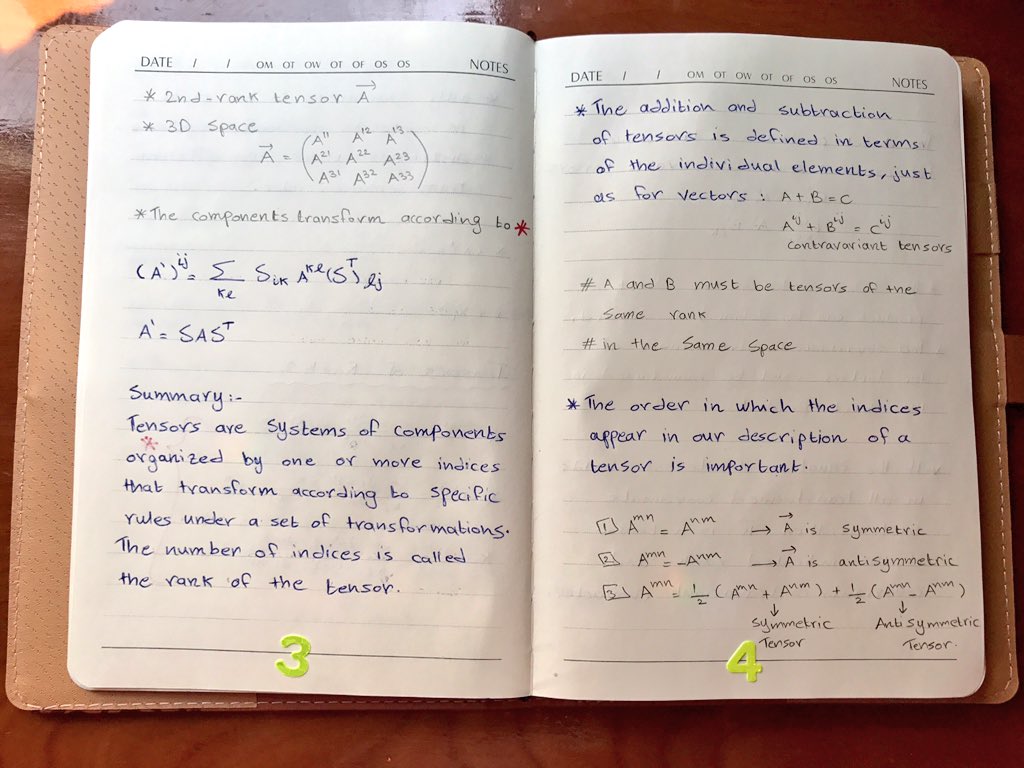 DATE / / OM OT OW OT OF OS OS NOTES
* 2nd-rank tensor A⃗
* 3D space
A⃗ = (A¹¹ A¹² A¹³
A²¹ A²² A²³
A³¹ A³² A³³)
* The components transform according to *
(A')ⁱʲ = Σ Sᵢₖ Aᵏˡ (Sᵀ)ₗⱼ
kl
A' = SASᵀ
Summary:-
Tensors are systems of components
*
organized by one or more indices
that transform according to specific
rules under a set of transformations.
The number of indices is called
the rank of the tensor.
3
DATE / / OM OT OW OT OF OS OS NOTES
* The addition and subtraction
of tensors is defined in terms
of the individual elements, just
as for vectors : A + B = C
Aⁱʲ + Bⁱʲ = Cⁱʲ
contravariant tensors
# A and B must be tensors of the
same rank
# in the same space
* The order in which the indices
appear in our description of a
tensor is important.
[1] Aᵐⁿ = Aⁿᵐ → A⃗ is symmetric
[2] Aᵐⁿ = -Aⁿᵐ → A⃗ is antisymmetric
[3] Aᵐⁿ = 1/2 (Aᵐⁿ + Aⁿᵐ) + 1/2 (Aᵐⁿ - Aⁿᵐ)
↓ ↓
Symmetric Antisymmetric
Tensor Tensor.
4